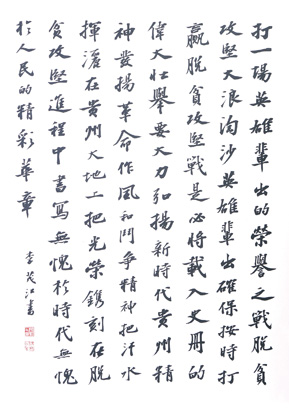 打一場英雄輩出的榮譽之戰脫貧
攻堅大浪淘沙英雄輩出確保按時打
贏脫貧攻堅戰是必將載入史冊的
偉大壯舉要大力弘揚新時代貴州精
神發揚革命作風和鬥爭精神把汗水
揮灑在貴州大地上把光榮鐫刻在脫
貧攻堅進程中書寫無愧於時代無愧
於人民的精彩華章
李茂江書